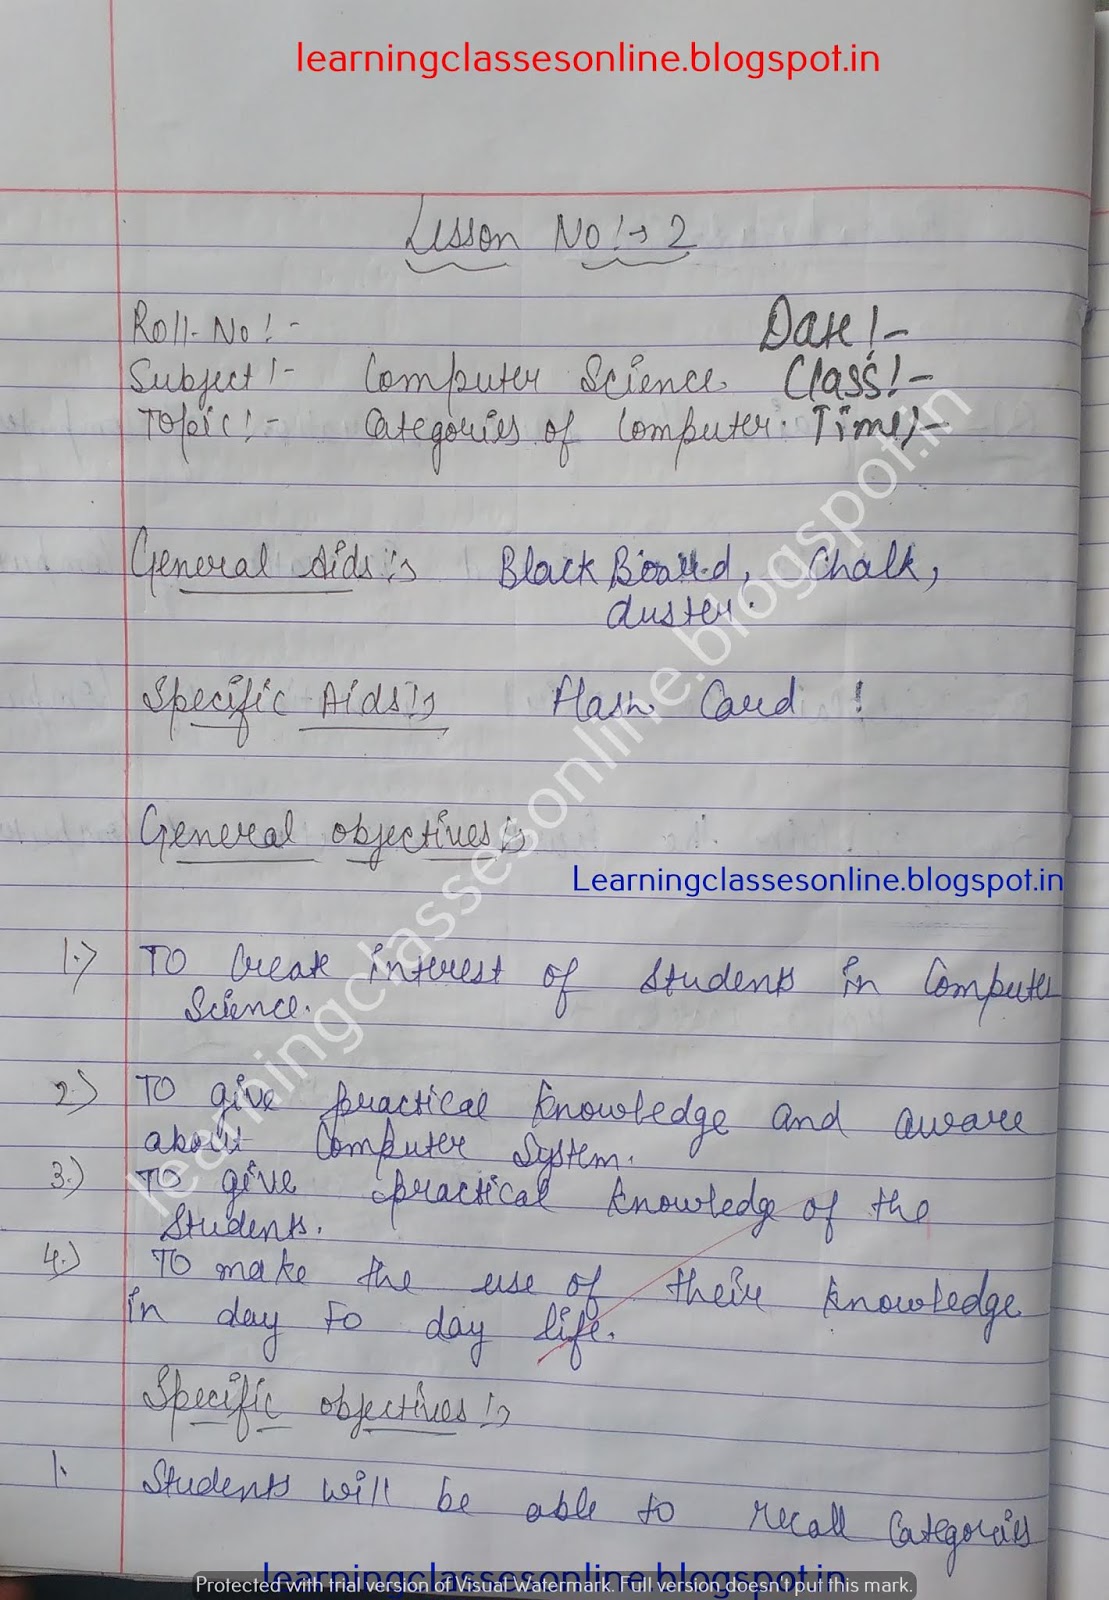 learningclassesonline.blogspot.in
Lesson No:→ 2
Roll-No:- Date:-
Subject:- Computer Science. Class:-
Topic:- Categories of Computer. Time:-
General Aids:→ Black Board, Chalk,
duster.
Specific Aids:→ Flash Card !
General objectives:→
Learningclassesonline.blogspot.in
1.) To Create interest of students in Computer
Science.
2.) To give practical knowledge and aware
about Computer System.
3.) To give practical knowledge of the
Students.
4.) To make the use of their knowledge
in day to day life.
Specific objectives:→
1. Students will be able to recall Categories
learningclassesonline.blogspot.in
learningclassesonline.blogspot.in
Protected with trial version of Visual Watermark. Full version doesn't put this mark.